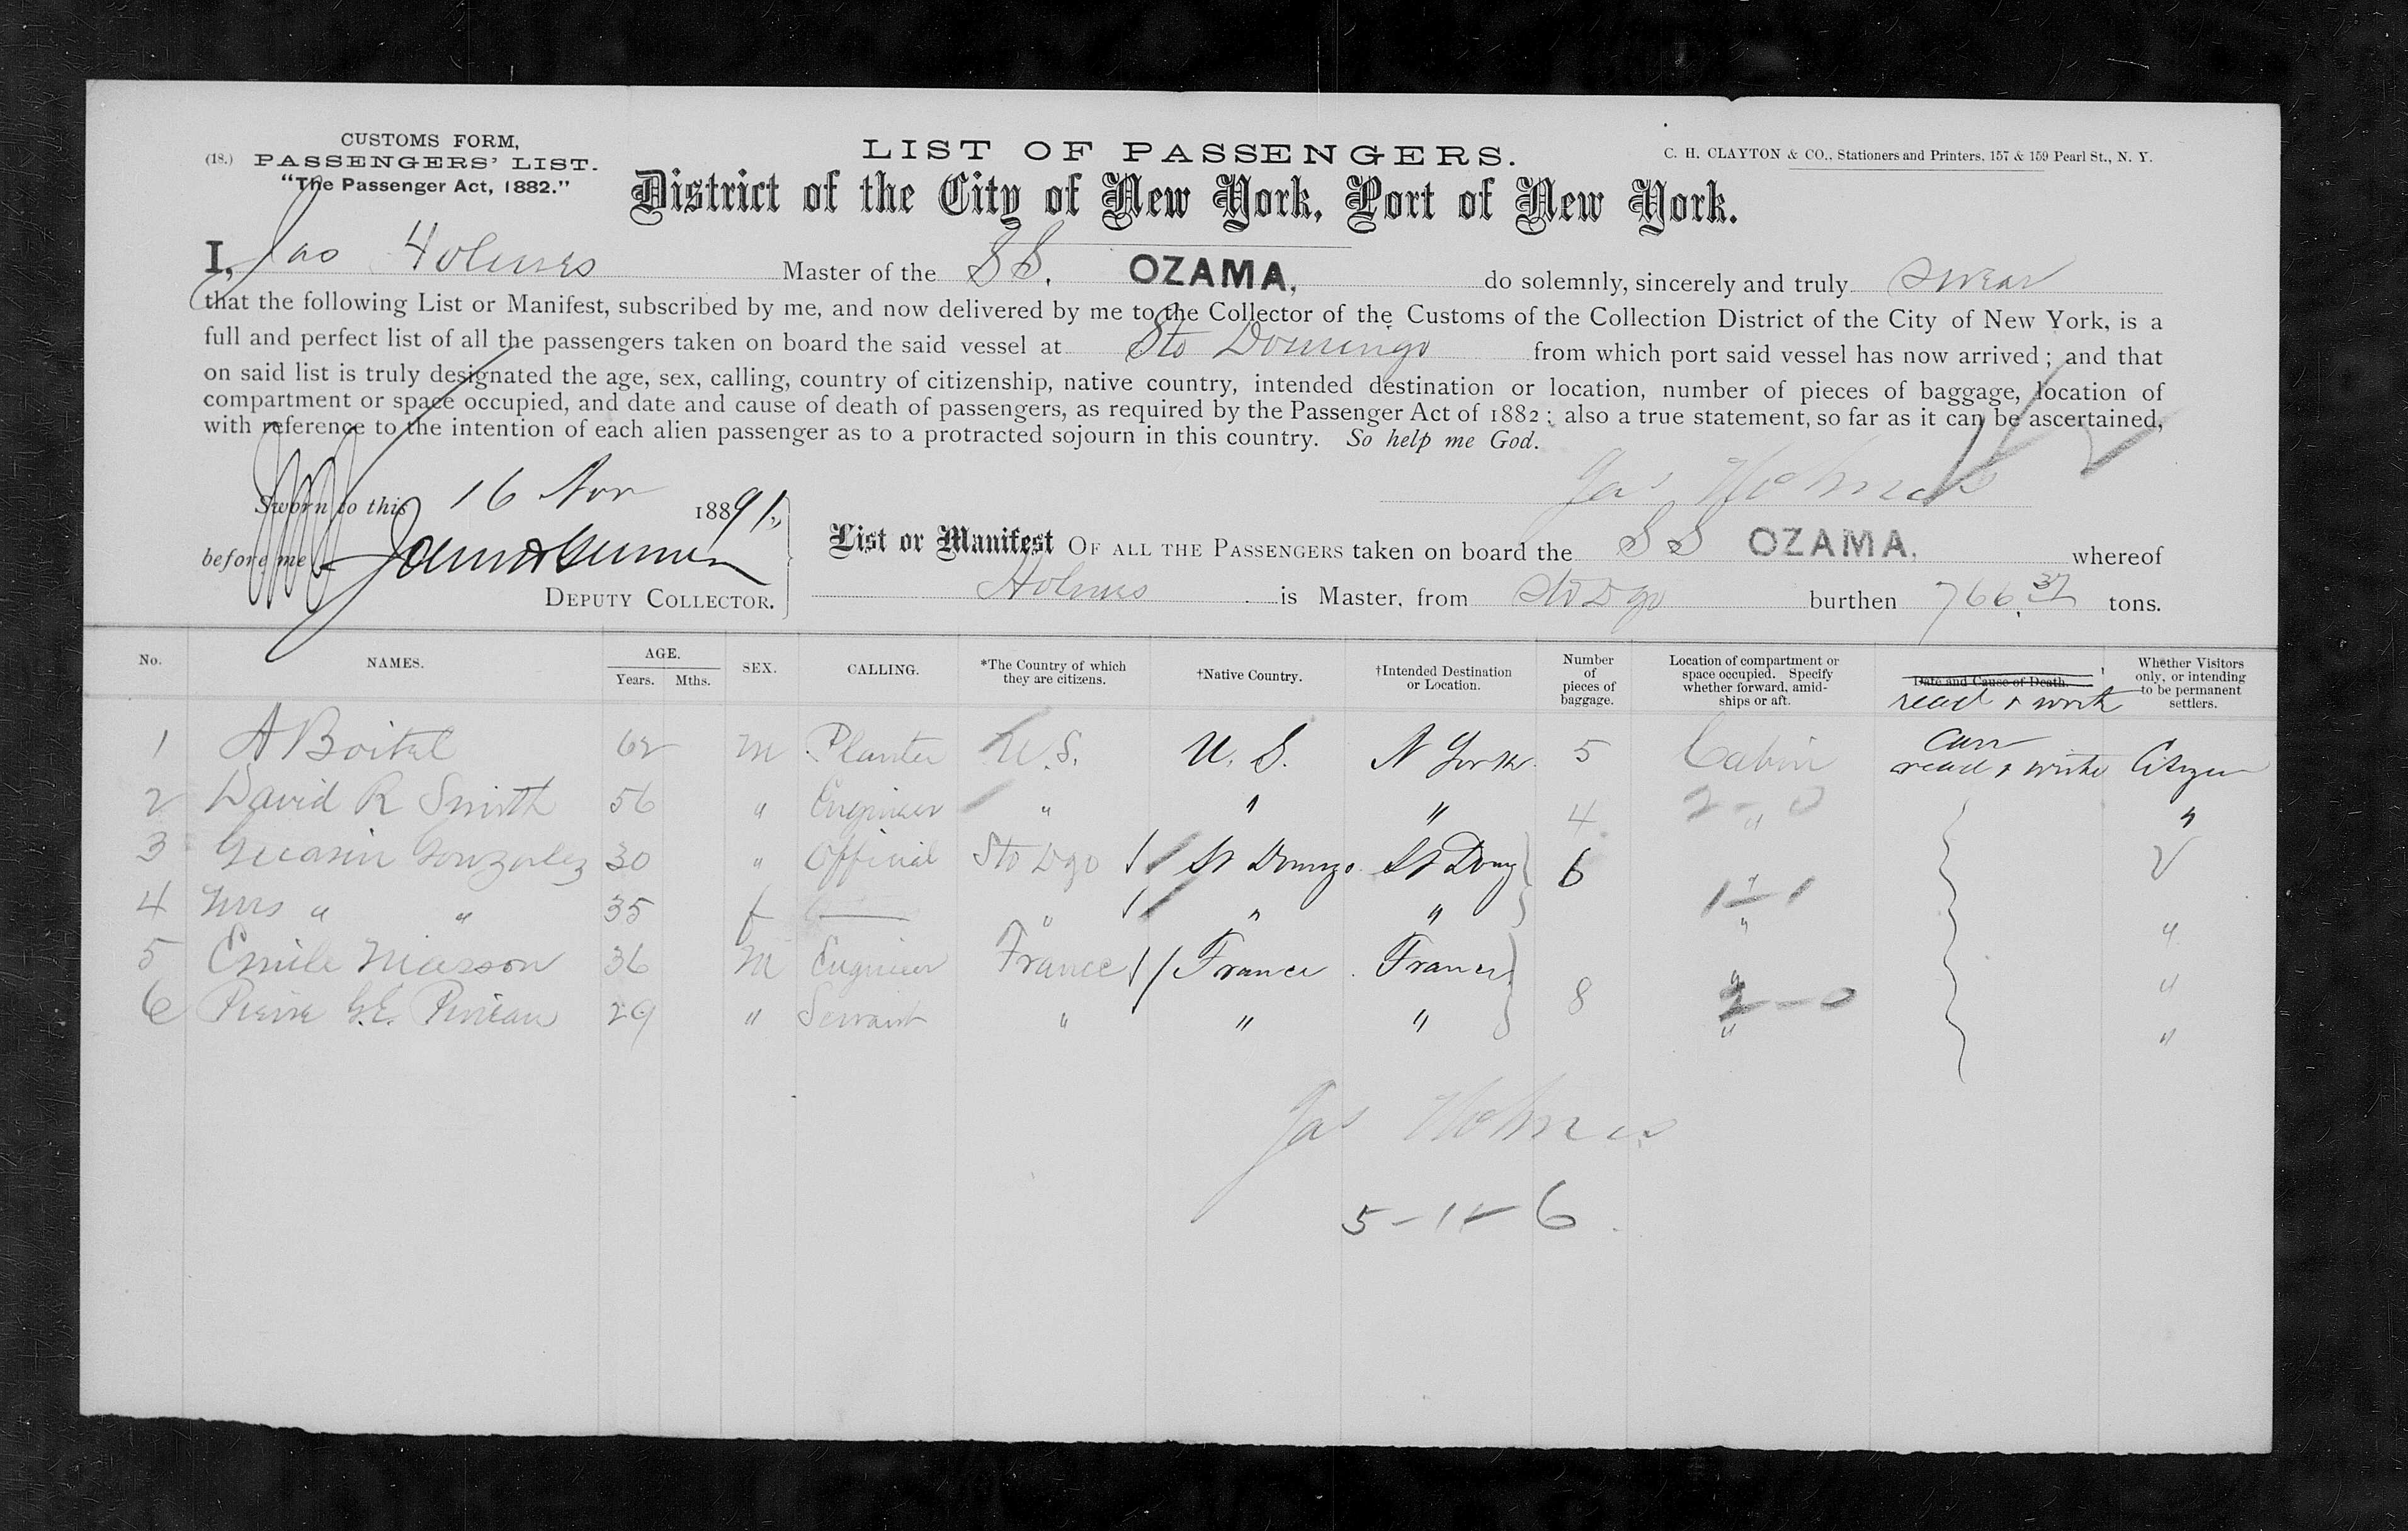 CUSTOMS FORM,
(18.) PASSENGERS' LIST.
"The Passenger Act, 1882."
LIST OF PASSENGERS.
C. H. CLAYTON & CO., Stationers and Printers, 157 & 159 Pearl St., N. Y.
District of the City of New York, Port of New York.
I, Jas Holmes Master of the SS. OZAMA, do solemnly, sincerely and truly swear
that the following List or Manifest, subscribed by me, and now delivered by me to the Collector of the Customs of the Collection District of the City of New York, is a
full and perfect list of all the passengers taken on board the said vessel at Sto Domingo from which port said vessel has now arrived; and that
on said list is truly designated the age, sex, calling, country of citizenship, native country, intended destination or location, number of pieces of baggage, location of
compartment or space occupied, and date and cause of death of passengers, as required by the Passenger Act of 1882; also a true statement, so far as it can be ascertained,
with reference to the intention of each alien passenger as to a protracted sojourn in this country. So help me God.
Jas Holmes
Sworn to this 16 Nov 18891
before me
DEPUTY COLLECTOR.
List or Manifest OF ALL THE PASSENGERS taken on board the SS OZAMA, whereof
Holmes is Master, from Sto Dgo burthen 766.37 tons.
No. NAMES. AGE. Years. Mths. SEX. CALLING. *The Country of which they are citizens. †Native Country. †Intended Destination or Location. Number of pieces of baggage. Location of compartment or space occupied. Specify whether forward, amidships or aft. Date and Cause of Death. read & write Whether Visitors only, or intending to be permanent settlers.
1 A Boitel 62 m Planter U.S. U. S. N York 5 Cabin can read & write Citizen
2 David R Smith 56 " Engineer " " " 4 " 2-0 "
3 Gonzalez 30 " Official Sto Dgo St Domgo St Domg 6 " V
4 Mrs " " 35 f — " " " 1-1 " "
5 Emile Masson 36 M Engineer France France France "
6 Pierre G.E. Pineau 29 " Servant " " " 8 2-0 " "
Jas Holmes
5-1-6